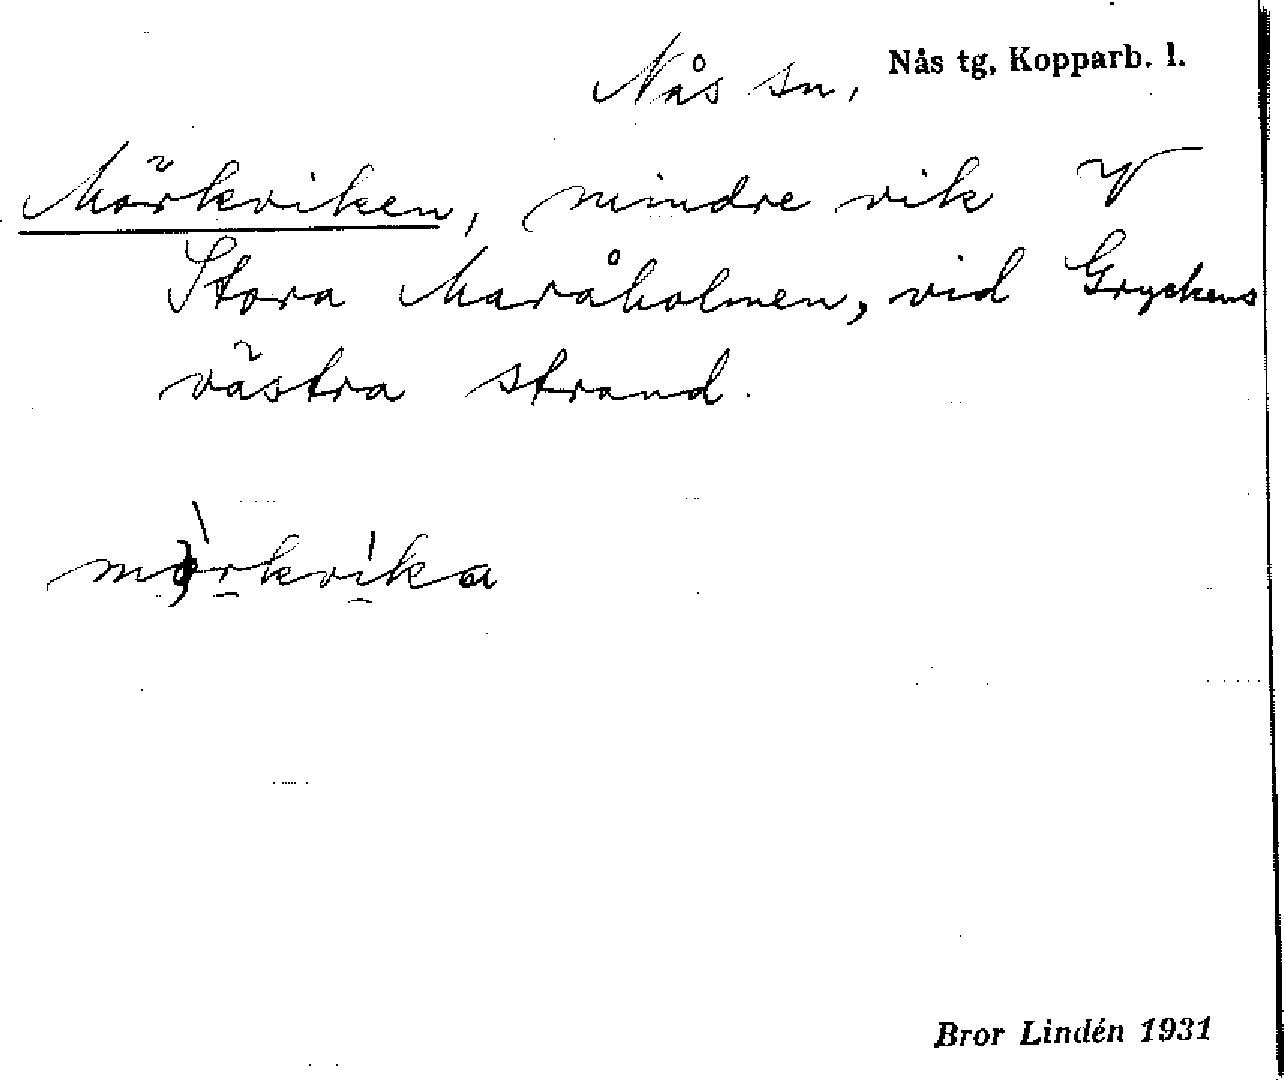 Nås sn, Nås tg, Kopparb. l.
Mörkviken, mindre vik V
Stora Maråholmen, vid Gryckens
västra strand.
mörkvika
Bror Lindén 1931